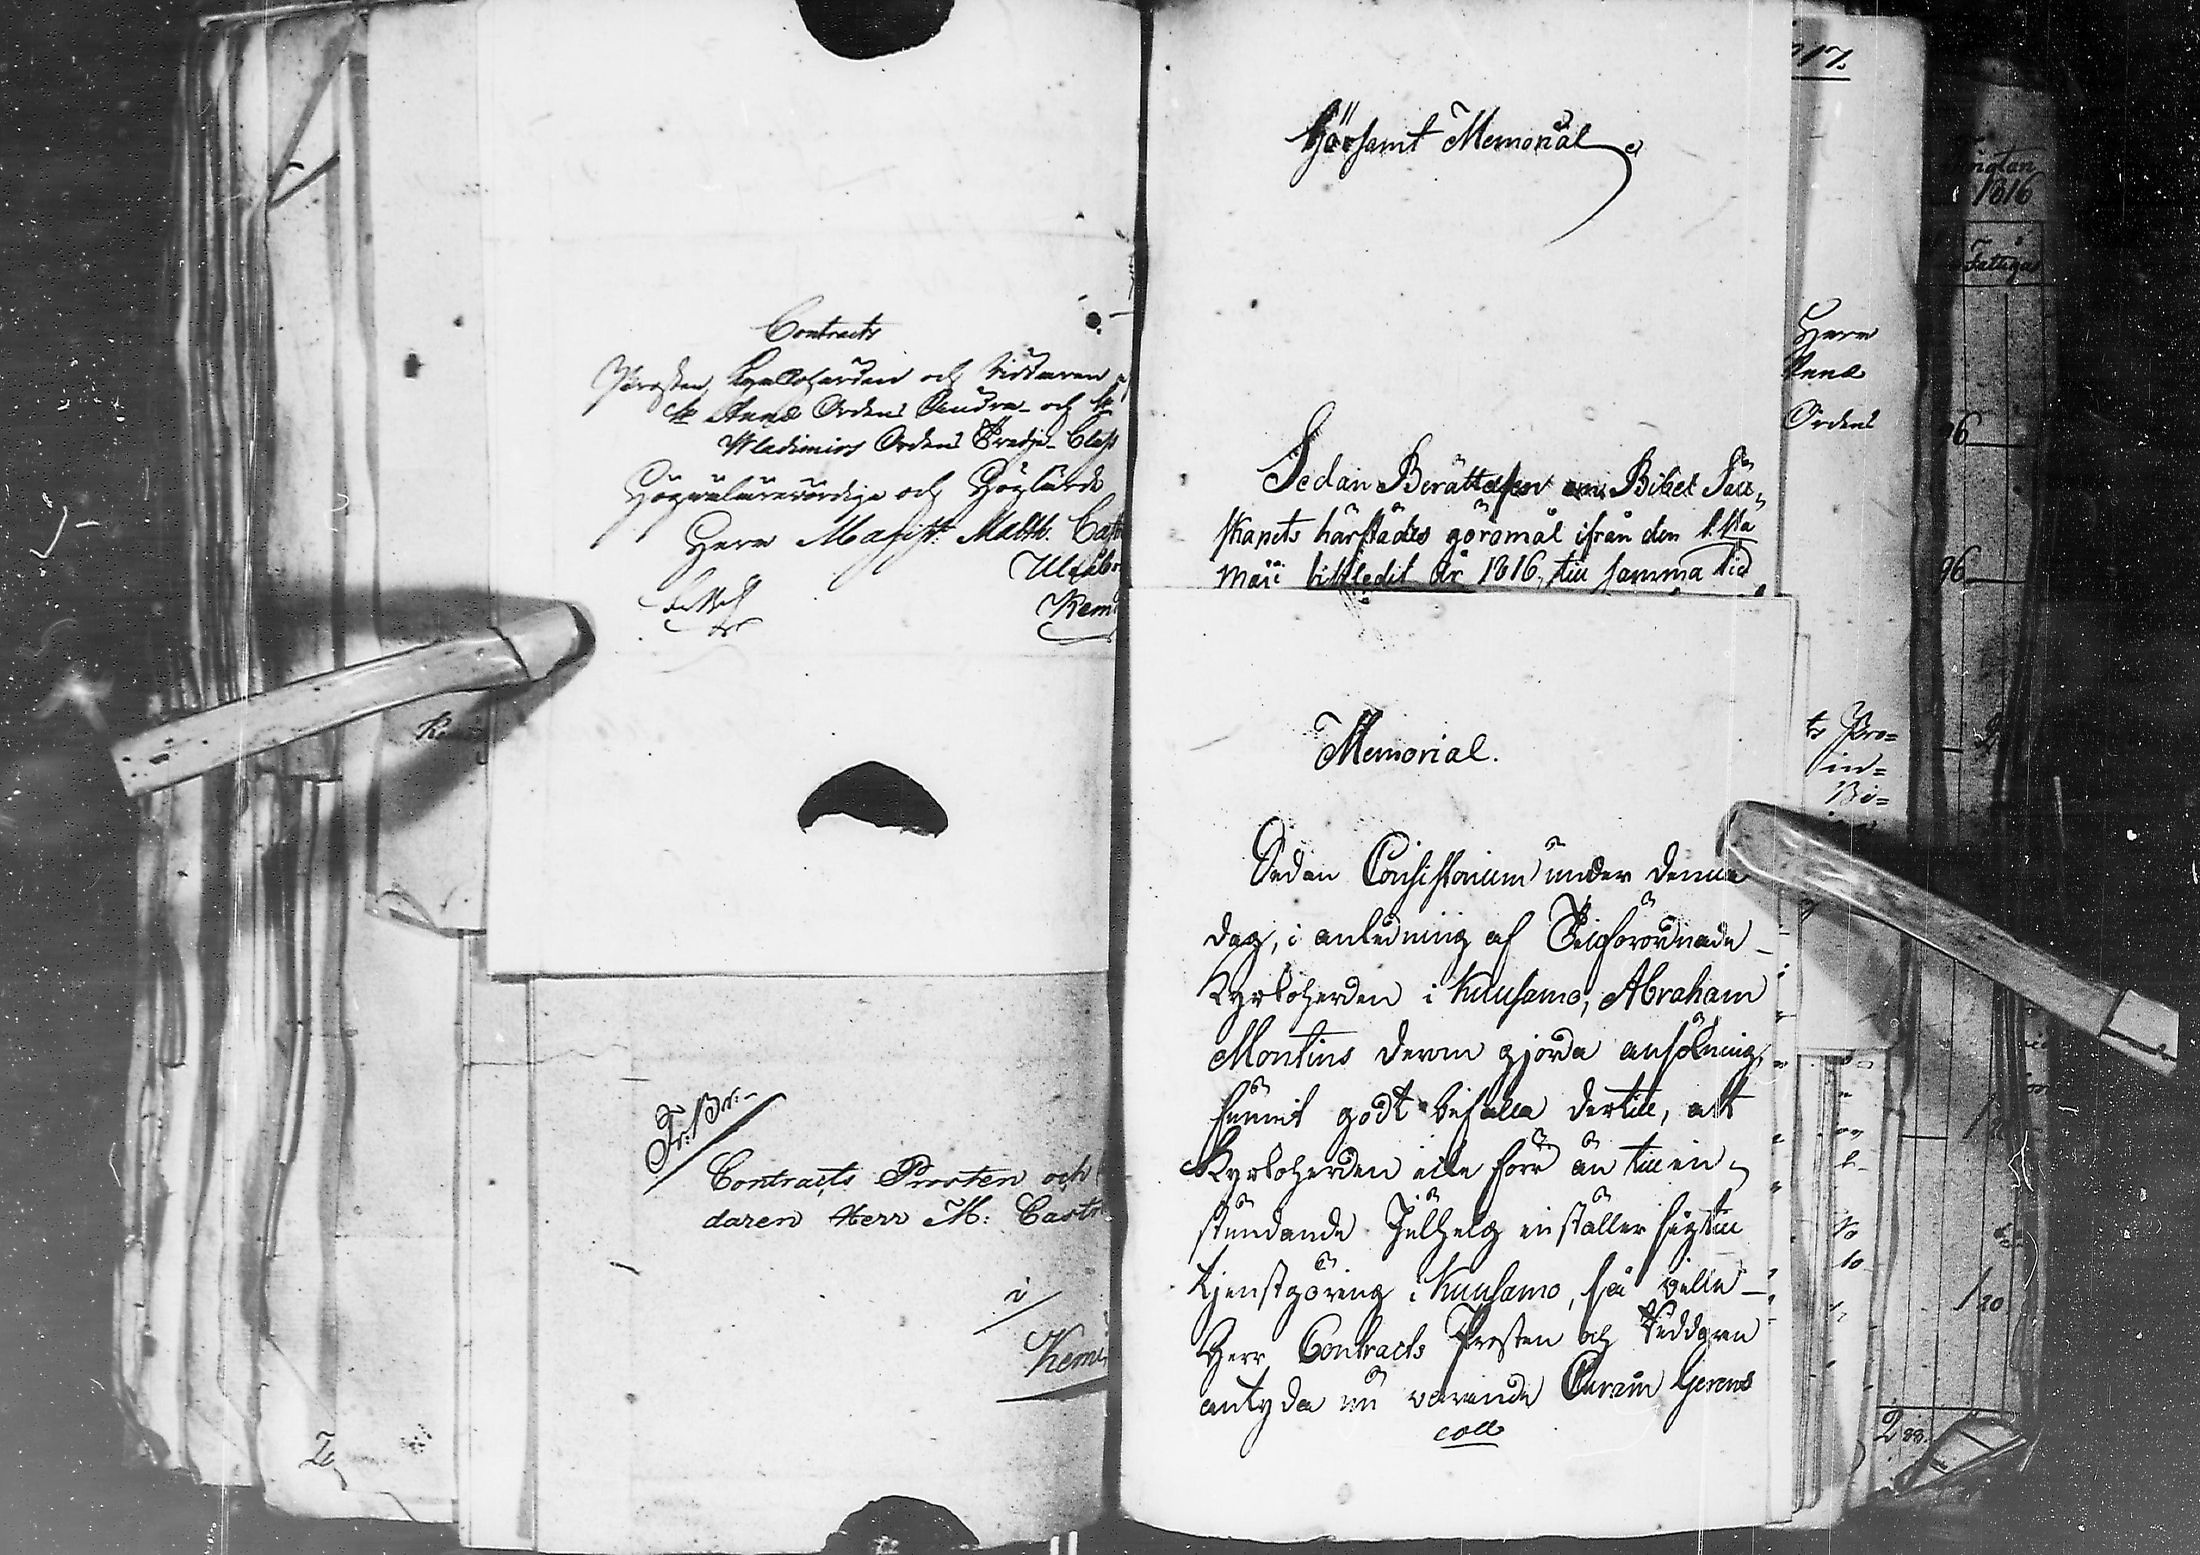 Contracts
Prosten, Kyrkoherden och Riddaren af
St Annæ Ordens Andra- och St
Wladimirs Ordens Tredje- Class
Högvälärevördige och Höglärde
Herr Magist. Matth. Cast
Uleåb
Kemi
Fr: Br:-
Contracts Prosten och
daren Herr M: Castr
i
Kemi
17.
Hörsamt Memorial
Sedan Berättelsen om Bibel Säll-
skapets härstädes göromål ifrån den 1sta
Maii sistledit år 1816, till samma tid
Memorial.
Sedan Consistorium under denna
dag, i anledning af Tilförordnade
Kyrkoherden i Kuusamo, Abraham
Montins derom gjorda ansökning,
funnit godt bifalla dertill, att
Kyrkoherden icke förr än till in-
stundande Julhelg inställer sig till
tjenstgöring i Kuusamo, så ville
Herr Contracts Prosten och Riddaren
antyda nu varande Curam Gerens
coll
Herr
Annæ
Ordens
ts Pro=
in=
Bi=
1816
Fattiga
96
96
120